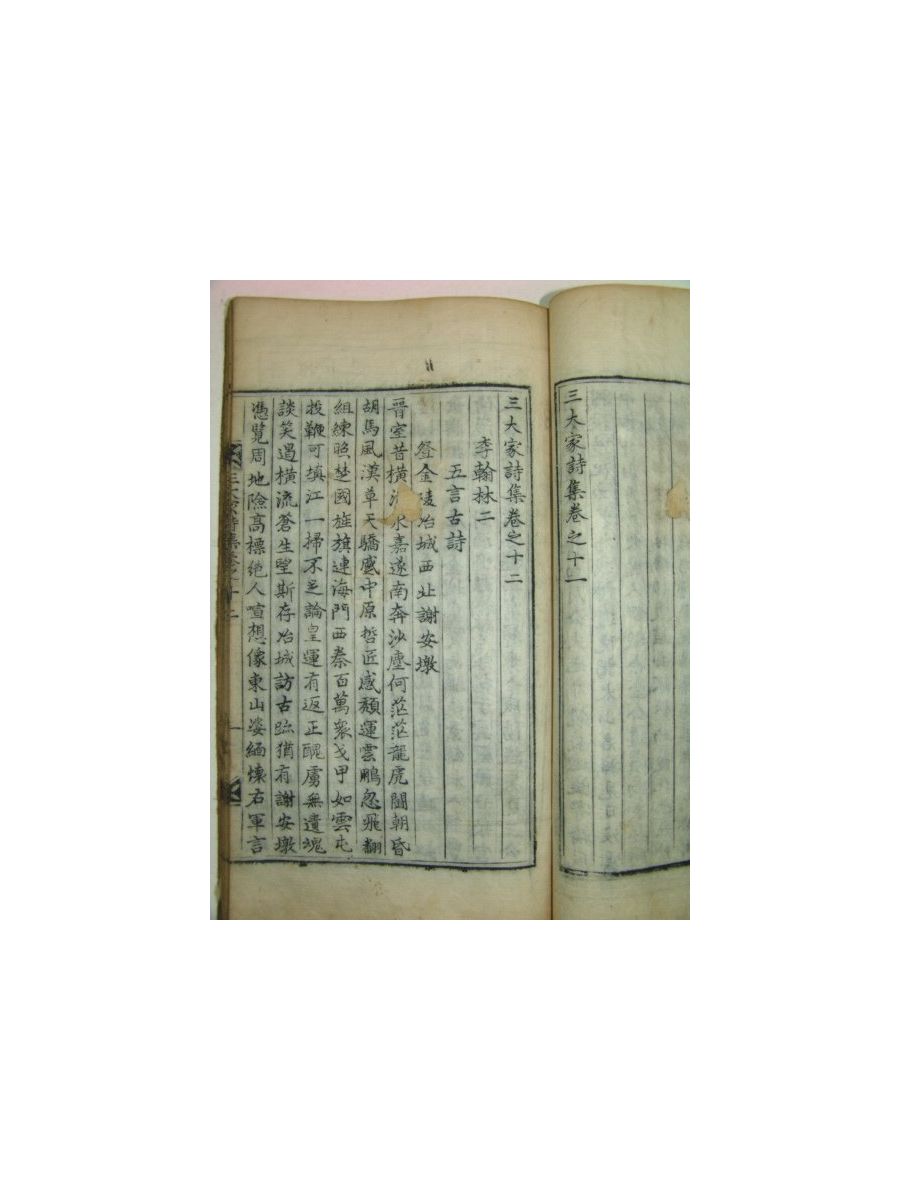 三大家詩集卷之十一
三大家詩集卷之十二
李翰林二
五言古詩
登金陵冶城西北謝安墩
晉室昔橫潰永嘉遂南奔沙塵何茫茫龍虎鬪朝昏
胡馬風漢草天驕蹙中原哲匠感頹運雲鵬忽飛翻
組練照楚國旌旗連海門西秦百萬衆戈甲如雲屯
投鞭可塡江一掃不足論皇運有返正醜虜無遺魂
談笑遏橫流蒼生望斯存冶城訪古跡猶有謝安墩
憑覽周地險高標絶人喧想像東山姿緬懷右軍言
三大家詩集卷之十二
一